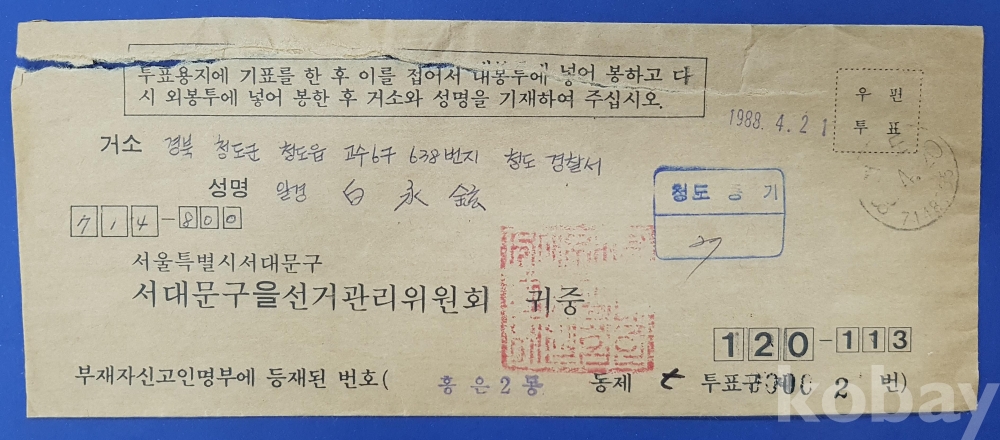 투표용지에 기표를 한 후 이를 접어서 내봉투에 넣어 봉하고 다
시 외봉투에 넣어 봉한 후 거소와 성명을 기재하여 주십시오.
우편
투표
1988. 4. 21
거소 경북 청도군 청도읍 고수6구 638번지 청도 경찰서
성명 일경 白 永 鉉
714-800
청도 등기
27
서울특별시서대문구
서대문구을선거관리위원회 귀중
120-113
부재자신고인명부에 등재된 번호( 홍은2동 동제 七 투표구 2 번)
kobay